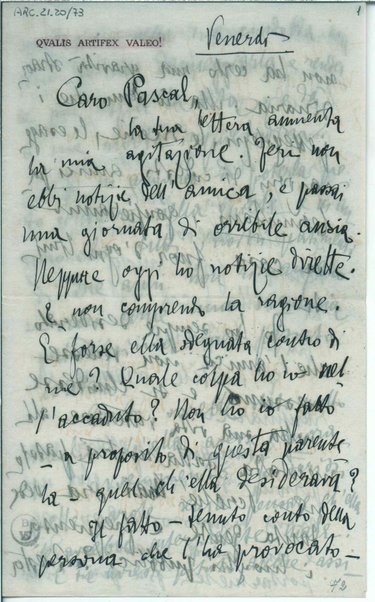 ARC.21.20/73
1
QVALIS ARTIFEX VALEO!
Venerdì
Caro Pascal,
la tua lettera aumenta
la mia agitazione. Jeri non
ebbi notizie dell'amica, e passai
una giornata di orribile ansia.
Neppure oggi ho notizie dirette.
E non comprendo la ragione.
È forse ella sdegnata contro di
me? Quale colpa ho io nel-
l'accaduto? Non ho io fatto
- a proposito di questa parente-
la - quel ch'ella desiderava?
Il fatto - tenuto conto della
persona che l'ha provocato -
72